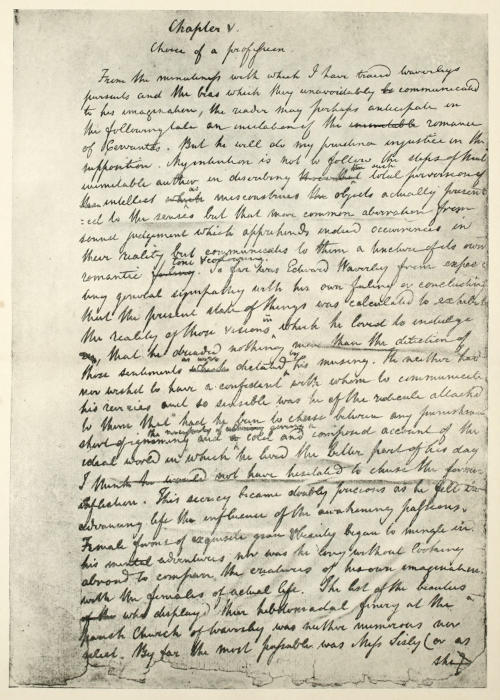 Chapter V.
Choice of a profession.
From the minuteness with which I have traced Waverleys
pursuits and the bias which they unavoidably communicated
to his imagination, the reader may perhaps anticipate in
the following tale an imitation of the inimitable romance
of Cervantes. But he will do my prudence injustice in the
supposition. My intention is not to follow the steps of that
inimitable author in describing such total perversion of
intellect as misconstrues the objects actually present
=ed to the senses but that more common aberration from
sound judgement which apprehends indeed occurrences in
their reality but communicates to them a tincture of its own
romantic tone & colouring. So far was Edward Waverley from expec
ting general sympathy with his own feelings or concluding
that the present state of things was calculated to exhibit
the reality of those visions in which he loved to indulge
that he dreaded nothing more than the detection of
those sentiments as were dictated by his musing. He neither had
nor wished to have a confident with whom to communicate
his reveries and so sensible was he of the ridicule attached
to them that had he been to chuse between any punishment
short of ignominy and the necessity of giving a cold and composed account of the
ideal world in which he lived the better part of his day
I think he would not have hesitated to chuse the former
infliction. This secrecy became doubly precious as he felt in
advancing life the influence of the awakening passions.
Female forms of exquisite grace & beauty began to mingle in
his mental adventures nor was he long without looking
abroad to compare the creatures of his own imagination
with the females of actual life. The list of the beauties
who displayed their hebdomadal finery at the
parish Church of Waverley was neither numerous nor
select. By far the most passable was Miss Sisly (or as
she